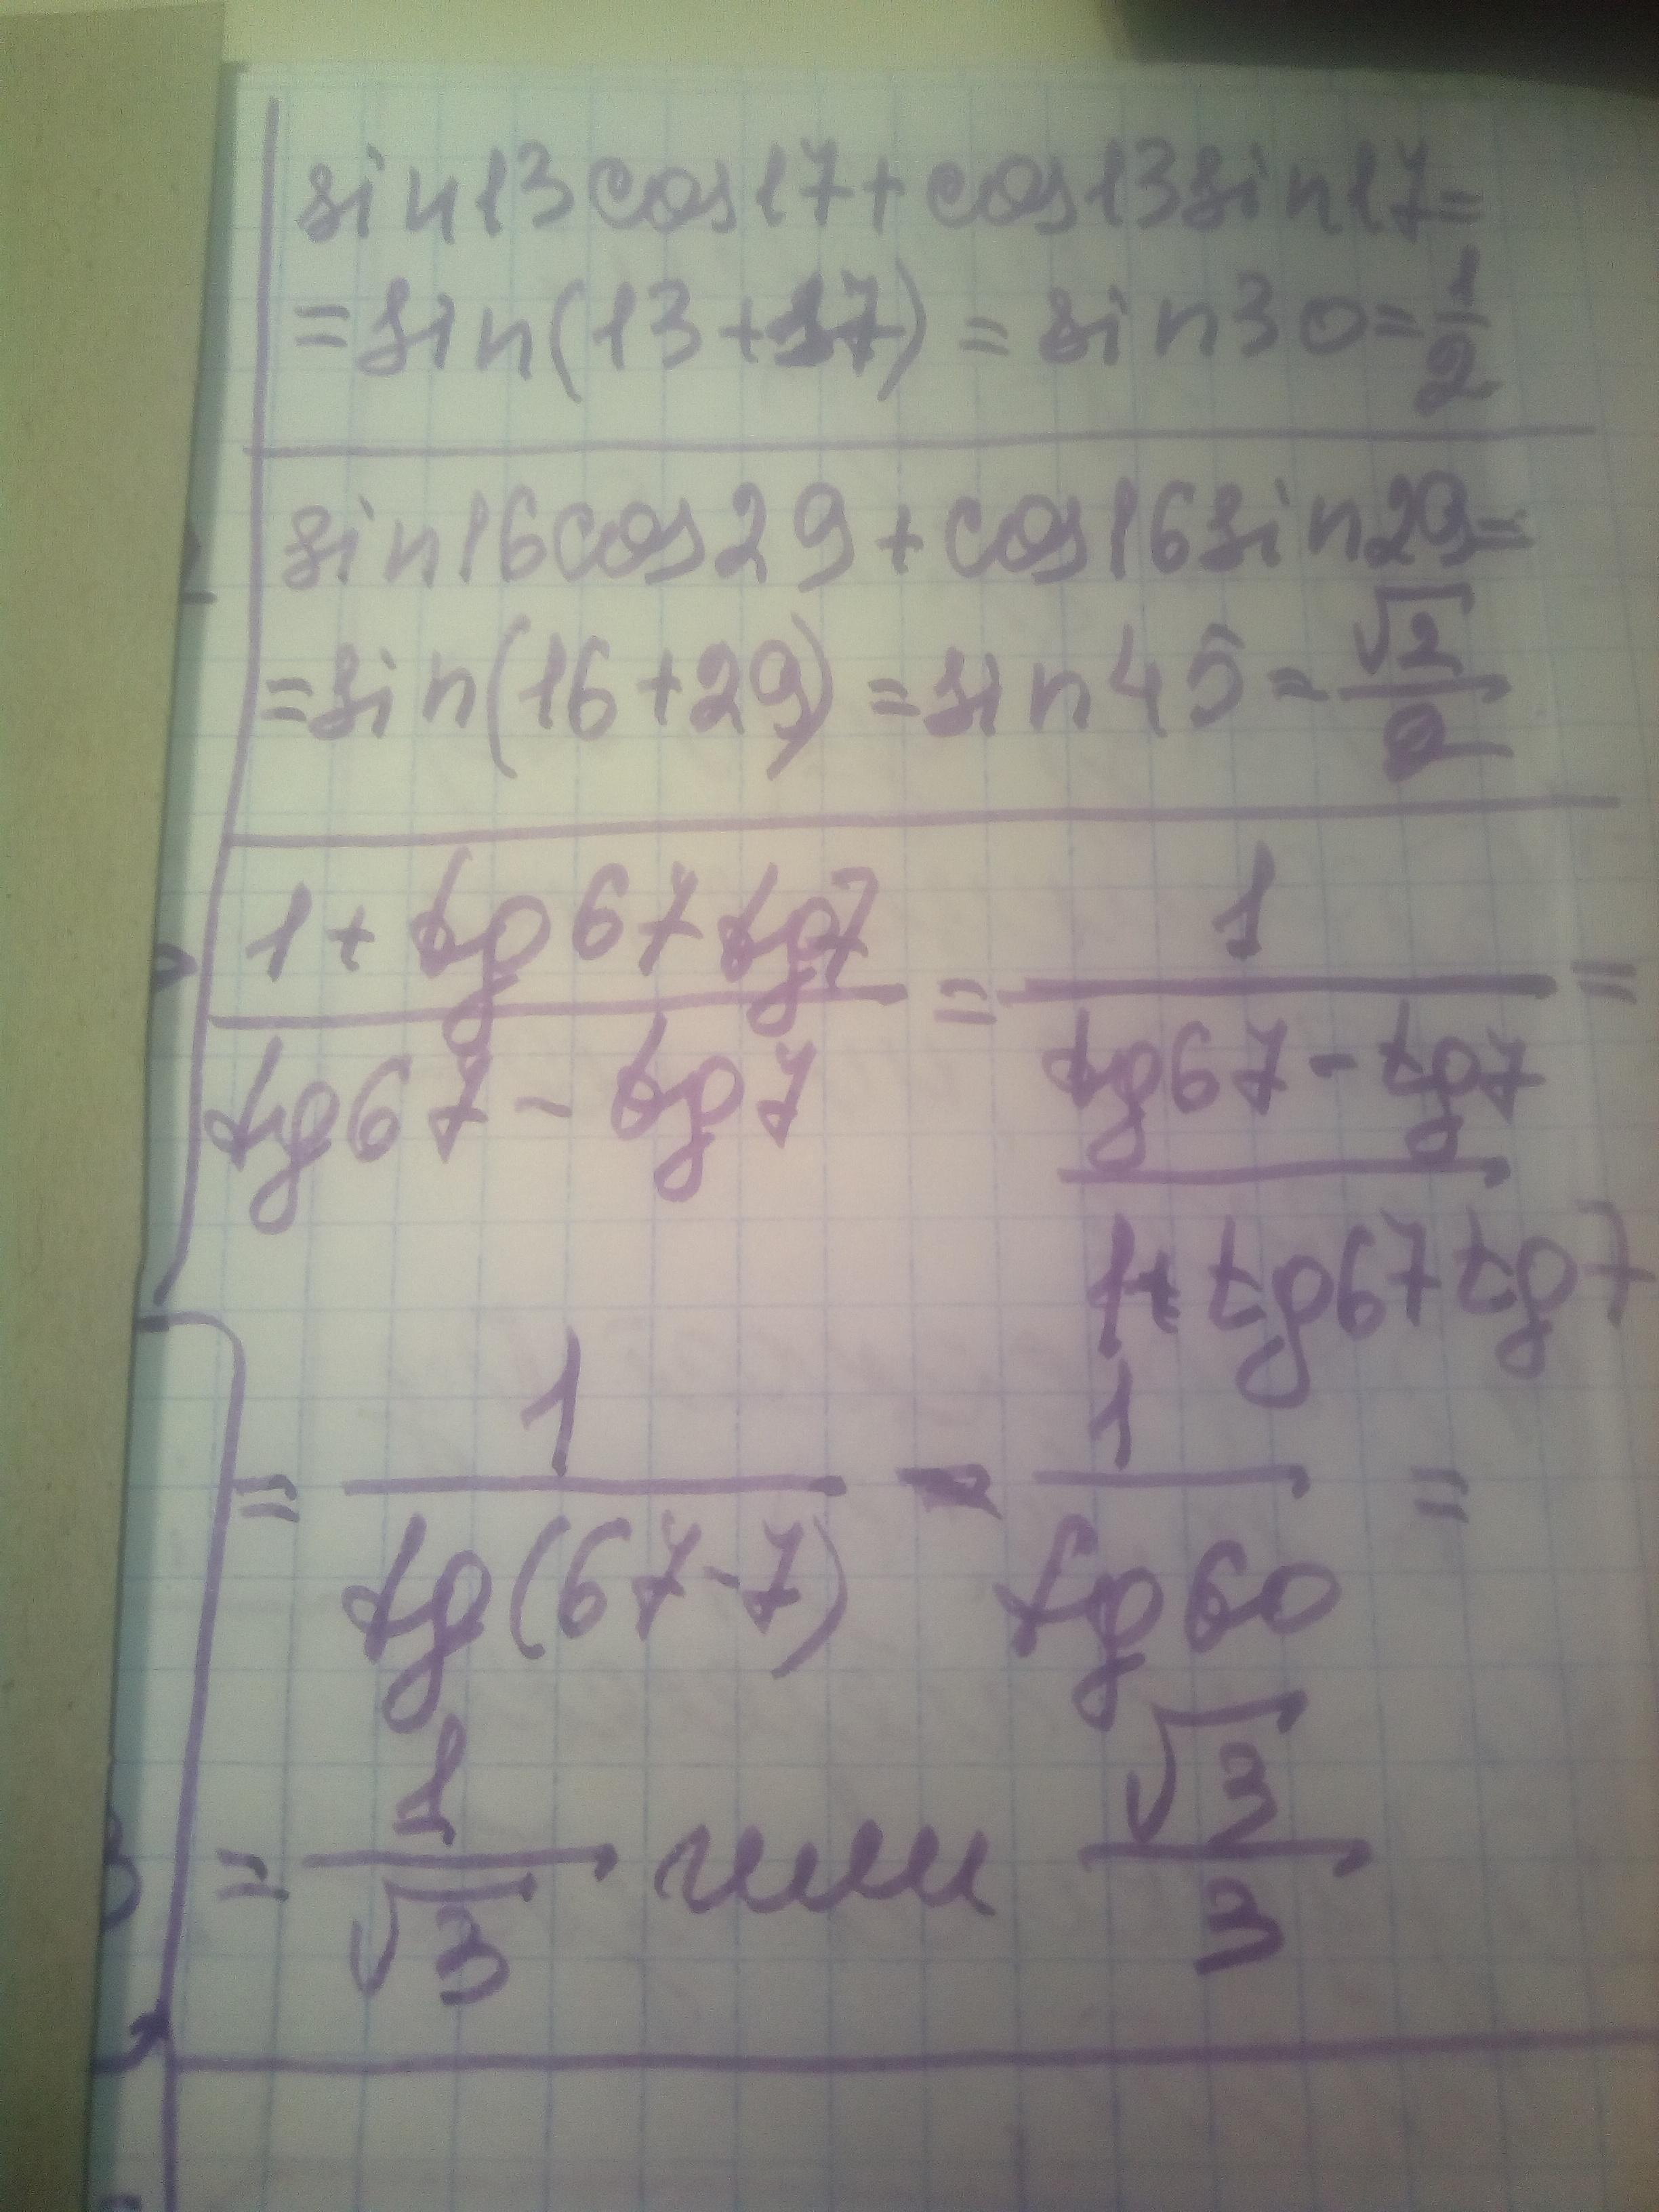 sin13cos17+cos13sin17=
=sin(13+17)=sin30=1/2
sin16cos29+cos16sin29=
=sin(16+29)=sin45=√2/2
(1+tg67tg7)/(tg67-tg7)=1/((tg67-tg7)/(1+tg67tg7))=
=1/tg(67-7)=1/tg60=
=1/√3 или √3/3